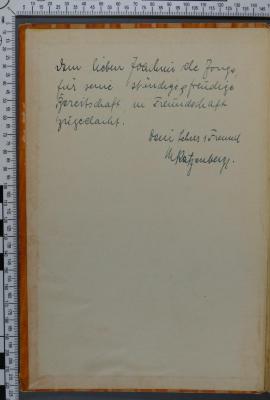 Dem lieben Joachim de Jonge
für seine ständige freudige
Bereitschaft in Freundschaft
zugedacht.
Dein Lehrer + Freund
M Katzenberg.